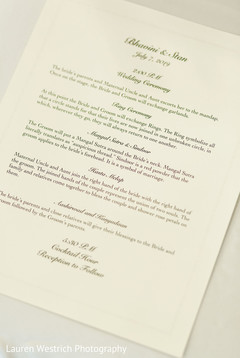 Bhavini & Stan
July 7, 2019
2:00 P.M
Wedding Ceremony
The bride's parents and Maternal Uncle and Aunt escorts her to the mandap.
Once on the stage, the bride and Groom will exchange garlands.
Ring Ceremony
At this point the Bride and Groom will exchange Rings. The Ring symbolizes all
that a circle stands for that their lives are now joined in one unbroken circle, in
which, wherever they go, they will always return to one another.
Mangal Sutra & Sindoor
The Groom will put a Mangal Sutra around the Bride's neck. Mangal Sutra
literally translates as "auspicious thread." Sindoor is a red powder that the
groom applies to the bride's forehead. It is a symbol of marriage.
Hasta Melap
Maternal Uncle and Aunt join the right hand of the bride with the right hand of the
groom. The joined hands of the couple represent the union of two souls. The
families and other relatives then to bless the couple and shower rose petals on
them.
Aashirwad and
The bride's parents and close relatives will give their blessings to the Bride and
followed by the Groom's parents.
5:30 P.M
Cocktail Hour
Reception to Follow
Lauren Westrich Photography